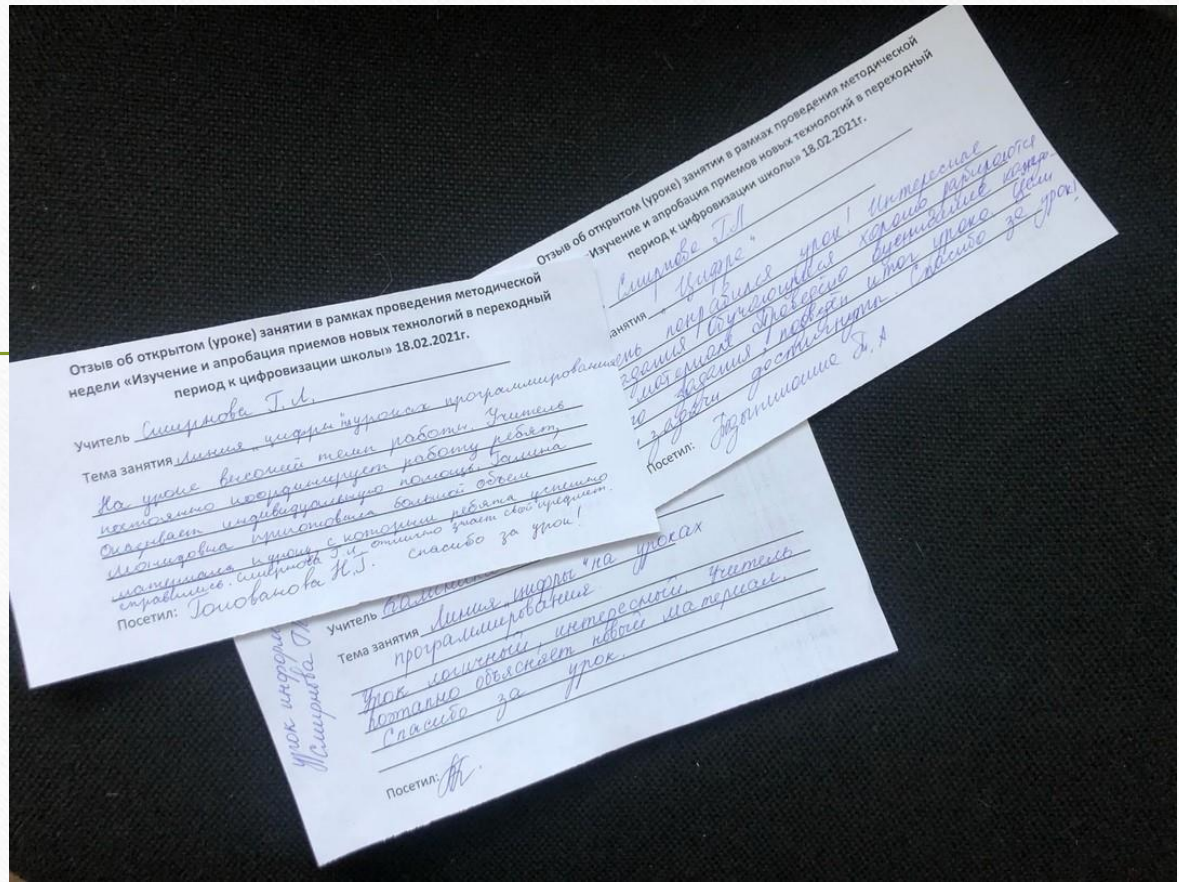 Отзыв об открытом (уроке) занятии в рамках проведения методической
недели «Изучение и апробация приемов новых технологий в переходный
период к цифровизации школы» 18.02.2021г.
Учитель Смирнова Г.Л.
Тема занятия Линия "цифры" на уроках программирования
На уроке высокий темп работы. Учитель
постоянно координирует работу ребят,
Оказывает индивидуальную помощь. Галина
Леонидовна приготовила большой объем
материала к уроку, с которым ребята успешно
справились. Смирнова Г.Л. отлично знает свой предмет.
Посетил: Голованова Н.Г. Спасибо за урок!
Отзыв об открытом (уроке) занятии в рамках проведения методической
«Изучение и апробация приемов новых технологий в переходный
период к цифровизации школы» 18.02.2021г.
Смирнова Г.Л
занятия "Цифра"
понравился урок! Интересные
задания, обучающиеся хорошо разбираются
материале. Проведено обсуждение каждо-
го задания, подведен итог урока. Цели
, задачи достигнуты. Спасибо за урок!
Посетил: Т.А
Учитель
Тема занятия Линия "цифры" на уроках
программирования
Урок логичный, интересный. Учитель
поэтапно объясняет новый материал.
Спасибо за урок.
Посетил:
Урок
Смирнова